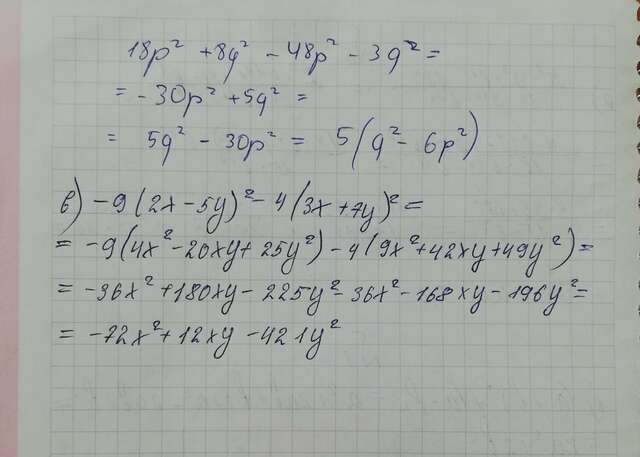 18p² + 8q² - 48p² - 3q² =
= - 30p² + 5q² =
= 5q² - 30p² = 5(q² - 6p²)
в) - 9(2x - 5y)² - 4(3x + 7y)² =
= -9(4x² - 20xy + 25y²) - 4(9x² + 42xy + 49y²) =
= -36x² + 180xy - 225y² - 36x² - 168xy - 196y² =
= -72x² + 12xy - 421y²